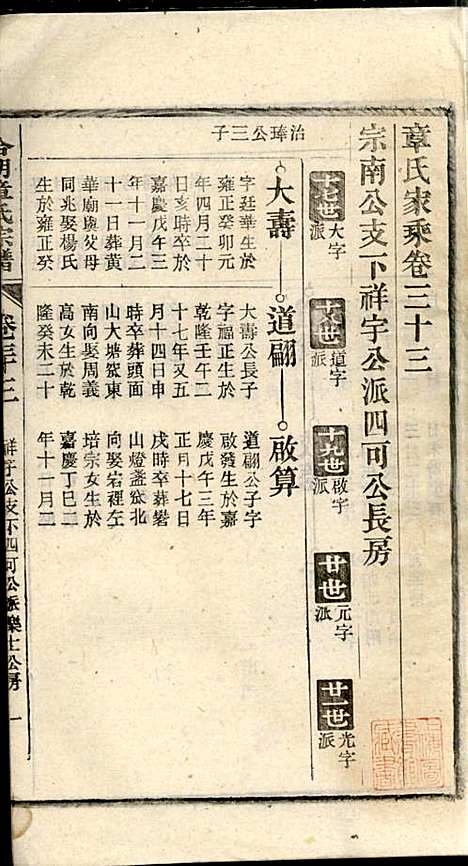 章氏家乘卷三十三
宗南公支下祥宇公派四可公長房
十七世 大字派
十八世 道字派
十九世 啟字派
廿世 元字派
廿一世 光字派
治琫公三子
大壽
字廷華生於
雍正癸卯元
年四月二十
日亥時卒於
嘉慶戊午三
年十一月二
十一日葬黄
華廟與父母
同兆娶楊氏
生於雍正癸
道翩
大壽公長子
字福正生於
乾隆壬午二
十七年又五
月十四日申
時卒葬頭面
山大塘窽東
南向娶周義
高女生於乾
隆癸未二十
啟算
道翩公子字
啟發生於嘉
慶戊午三年
正月十七日
戌時卒葬礬
山燈盞窊北
向娶岩裡左
培宗女生於
嘉慶丁巳二
年十一月二
章氏宗譜
卷三十三
祥宇公支下四可公派樂士公房
一